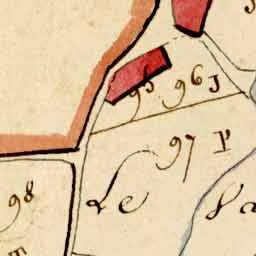 95 96 J
97 P
98
Le